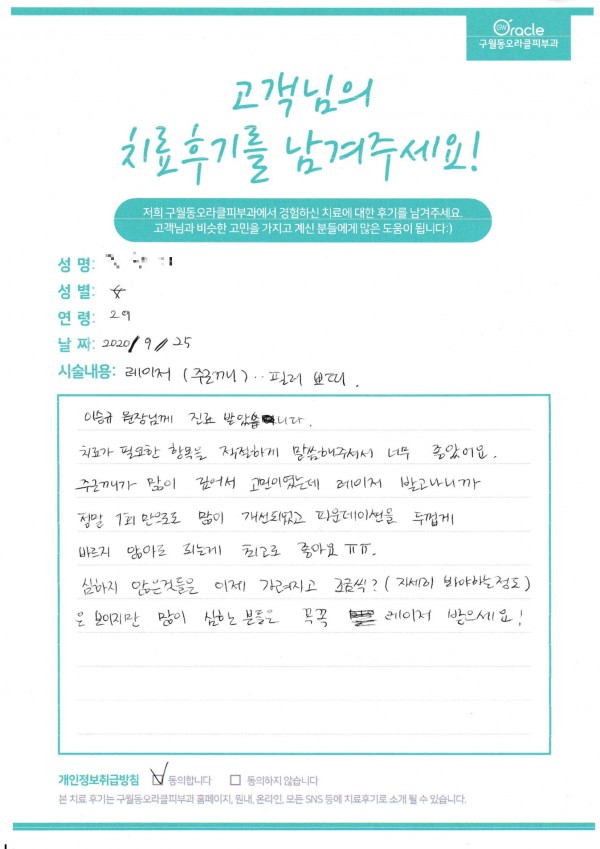 Oracle
구월동오라클피부과
고객님의
치료후기를 남겨주세요!
저희 구월동오라클피부과에서 경험하신 치료에 대한 후기를 남겨주세요.
고객님과 비슷한 고민을 가지고 계신 분들에게 많은 도움이 됩니다:)
성 명:
성 별: 女
연 령: 29
날 짜: 2020/9/25
시술내용: 레이저 (주근깨)..필러 보띠.
이승규 원장님께 진료 받았습니다.
치료가 필요한 항목을 적절하게 말씀해주셔서 너무 좋았어요.
주근깨가 많이 깊어서 고민이였는데 레이저 받고나니까
정말 1회 만으로도 많이 개선되었고 파운데이션을 두껍게
바르지 않아도 되는게 최고로 좋아요 ㅠㅠ.
심하지 않은것들은 이제 가려지고 조금씩? (자세히 봐야하는정도)
은 보이지만 많이 심한 분들은 꼭꼭 레이저 받으세요!
개인정보취급방침 동의합니다 동의하지 않습니다
본 치료 후기는 구월동오라클피부과 홈페이지, 원내, 온라인, 모든 SNS 등에 치료후기로 소개 될 수 있습니다.